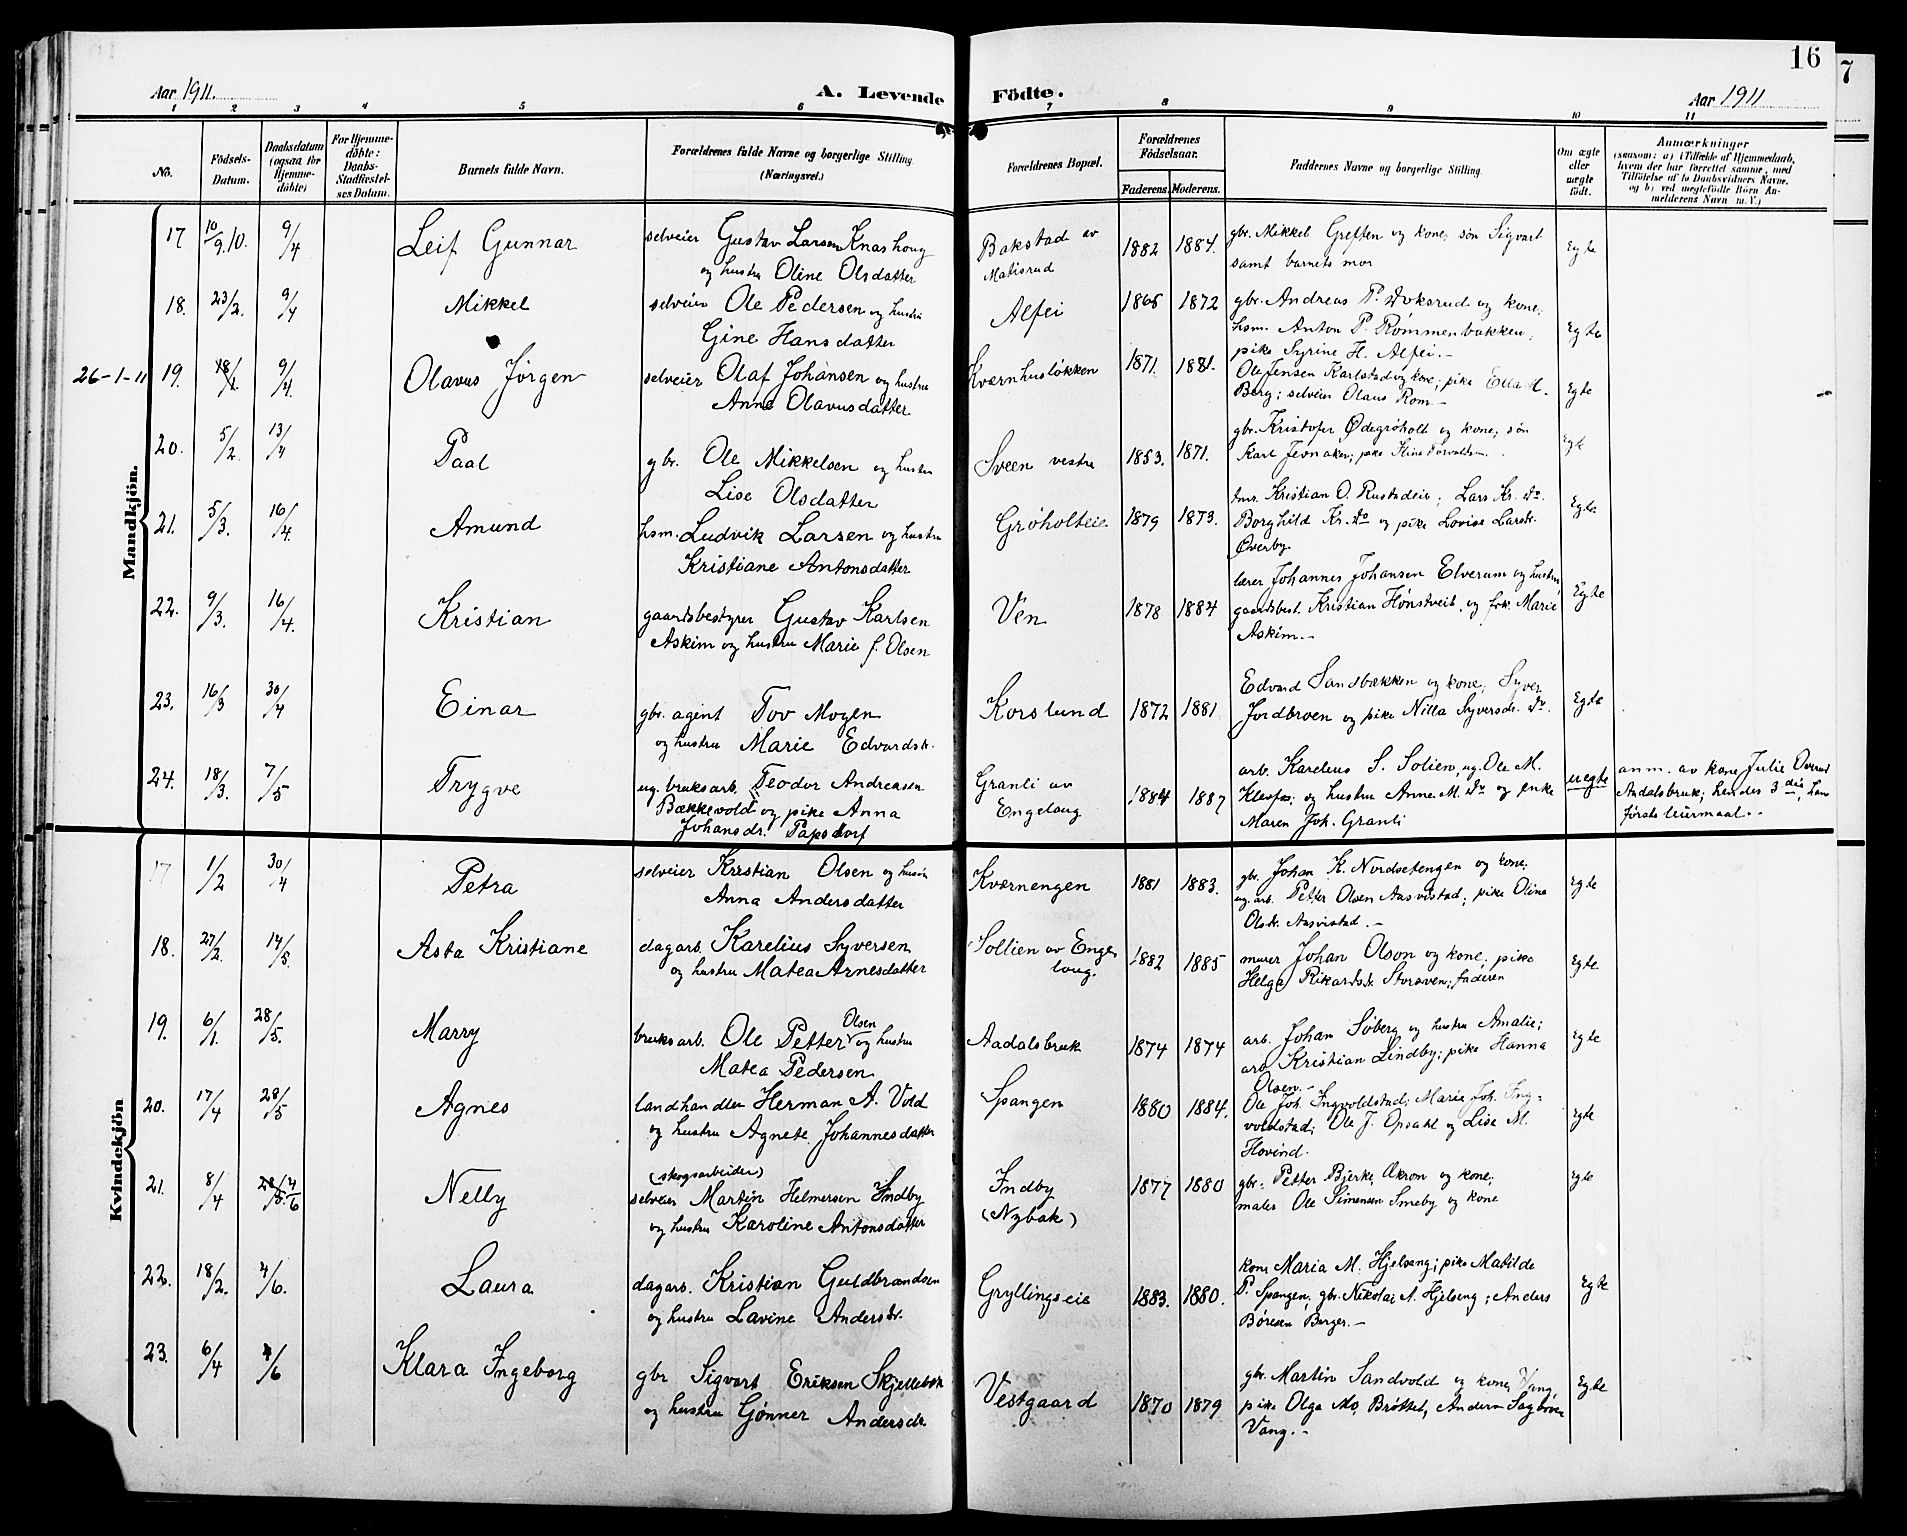 16
7
Aar 1911.
A. Levende Födte.
Aar 1911
1 2 3 4 5 6 7 8 9 10 11
No.
Födsels-Datum.
Daabsdatum (ogsaa för Hjemme-döbte)
For Hjemme-döbte: Daabs-Stadfæstel-ses Datum.
Barnets fulde Navn.
Forældrenes fulde Navne og borgerlige Stilling. (Næringsvei.)
Forældrenes Bopæl.
Forældrenes Födselsaar.
Faderens. Moderens.
Faddernes Navne og borgerlige Stilling.
Om ægte eller uægte födt.
Anmærkninger
(saasom: a) i Tilfælde af Hjemmedaab, hvem der har forrettet samme, med Tilföielse af to Daabsvidners Navne, og b) ved uegtefödte Börn An-melderens Navn m. V.)
Mandkjön.
17 10/9.10. 9/4 Leif Gunnar selveier Gustav Larsen Knashoug Bakstad av 1882 1884. gbr. Mikkel Greften og kone; søn Sigvart Egte
og hustru Oline Olsdatter Matisrud samt barnets mor
18. 23/2. 9/4 Mikkel selveier Ole Pedersen og hustru Alfei 1865 1872 gbr. Andreas P. Stoksrud og kone; Egte
Gine Hansdatter hsm. Anton P. Rømmenbakken;
pike Syrine H. Alfei.-
26-1-11 19. 18/1 9/4. Olavus Jörgen selveier Olaf Johansen og hustru Kværnhusløkken 1871. 1881. Ole Jensen Karlstad og kone; pike Ella M. Egte
Anne Olavusdatter Berg; selveier Olaus Rom.-
20. 5/2. 13/4 Paal gbr. Ole Mikkelsen og hustru Sveen vestre 1853. 1871. gbr. Kristofer Ødegröholt og kone; søn Egte
Lise Olsdatter Karl Jevnaker; pike
21. 5/3. 16/4. Amund hsm. Ludvik Larsen og hustru Grøholteie 1879 1873. Kristian O. Rustadeie; Lars Kr. do. Egte
Kristiane Antonsdatter Borghild Kr. do og pike Lovise Larsdr.
Øverby.
22. 9/3. 16/4. Kristian gaardsbestyrer Gustav Karlsen Ven 1878 1884 lærer Johannes Johansen Elverum og hustru Egte
Askim og hustru Marie f. Olsen gaardsbest. Kristian Hønstveit, og frk. Marie
Askim.-
23. 16/3 30/4 Einar gbr. agent Tov Mogen Korslund 1872 1881 Edvard Sandbækken og kone; Syver Egte
og hustru Marie Edvardsdr. Jordbroen og pike Nilla Syversdr. do.
24. 18/3. 7/5 Trygve ug. bruksarb. Teodor Andreasen Granli av 1884 1887 arb. Karelius S. Solien, ug. Ole M. uegte anm. av kone Julie Overud
Bækkevold og pike Anna Engelaug Klevfos; og hustru Anne M. do og enke Aadalsbruk; hendes 3die, han
Johansdr. Papsdorf Maren Joh. Granli første leiermaal.-
Kvindekjön
17 1/2 30/4 Petra selveier Kristian Olsen og hustru Kværnengen 1881 1883. gbr. Johan K. Nordsetengen og kone; Egte
Anna Andersdatter ug. arb. Petter Olsen Aasvistad; pike Oline
Olsdr. Aasvistad.-
18. 27/2. 14/5. Asta Kristiane dagarb. Karelius Syversen Sollien av Enge 1882 1885 murer Johan Olson og kone, pike Egte
og hustru Matea Arnesdatter laug. Helga Rikardsdr. Storsveen; faderen
19. 6/1. 28/5. Marry bruksarb. Ole Petter Olsen og hustru Aadalsbruk 1874 1874 arb. Johan Søberg og hustru Amalie; Egte
Matea Pedersen arb. Kristian Lindby; pike Hanna
Olsen.-
20. 17/4 28/5 Agnes landhandler Herman A. Vold Spangen 1880 1884. Ole Joh. Ingvoldstad; Marie Joh. Ing= Egte
og hustru Agnete Johannesdatter voldstad; Ole J. Opsahl og Lise M.
Hovind.
21. 8/4 28/5. 4/6 Nelly (skogsarbeider) Indby 1877 1880 gbr. Petter Bjerke, Akrom og kone; Egte
selveier Martin Helmersen Indby (Nybak) maler Ole Simensen Smeby og kone
og hustru Karoline Antonsdatter
22. 18/2. 4/6. Laura dagarb. Kristian Guldbrandsen Gryllingseie 1883. 1880. kone Maria M. Hjelseng; pike Matilde Egte
og hustru Lavine Andersdr. P. Spangen, gbr. Nikolai N. Hjelseng; Anders
Børesen Berger.-
23. 6/4 4/6 Klara Ingeborg gbr Sigvart Eriksen Skjellebæk Vestgaard 1870 1879 gbr. Martin Sandvold og kone, Vang, Egte
og hustru Gønner Andersdr. pike Olga Mo, Brøttet, Anders Sagbroen
Vang.-